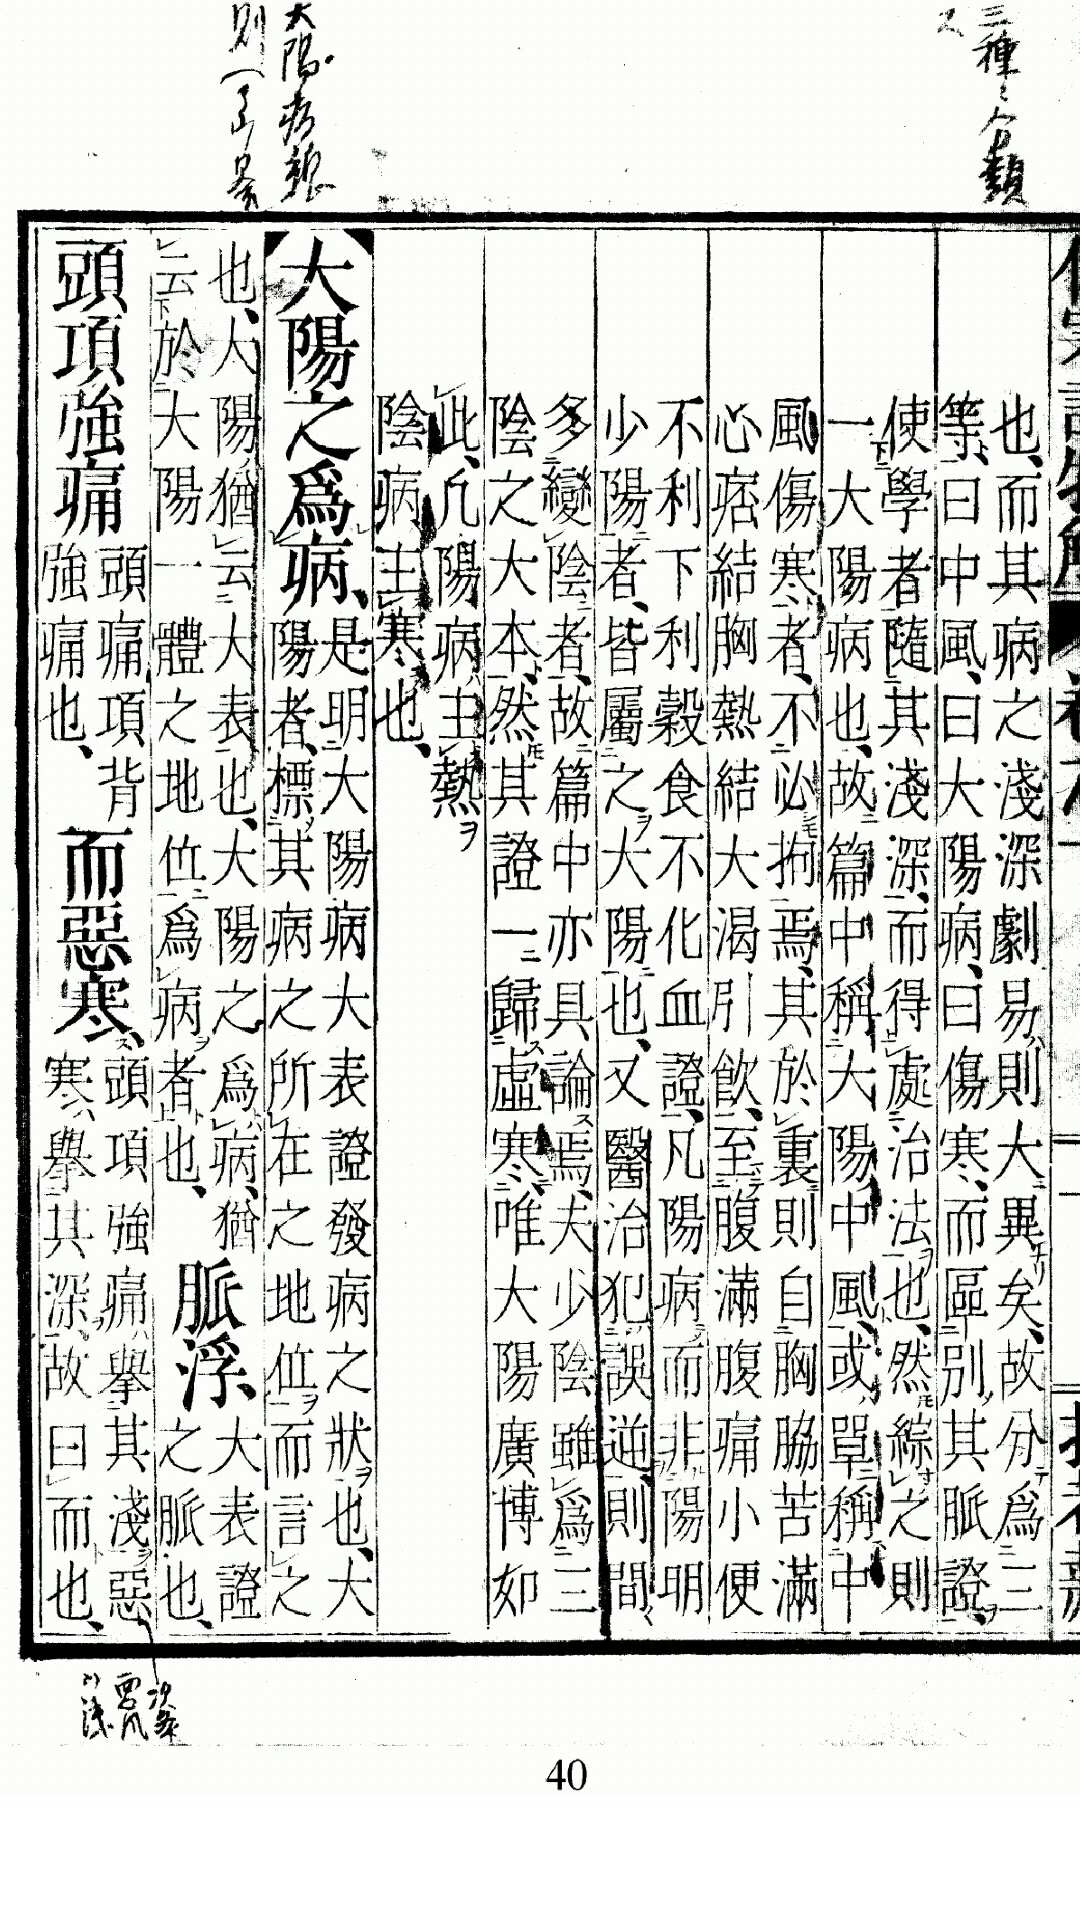 三種之分類
也、而其病之淺深劇易、則大異矣、故分爲三
等、曰中風、曰大陽病、曰傷寒、而區別其脈證、
使學者隨其淺深、而得處治法也、然綜之則
一大陽病也、故篇中稱大陽中風、或單稱中
風傷寒者、不必拘焉、其於裏則自胸脇苦滿
心痞結胸熱結大渴引飲、至腹滿腹痛小便
不利下利穀食不化血證、凡陽病而非陽明
少陽者、皆屬之大陽也、又醫治犯誤逆、則間
多變陰者、故篇中亦具論焉、夫少陰雖爲三
陰之大本、然其證一歸虛寒、唯大陽廣博如
此、凡陽病主熱
陰病主寒也、
大陽之爲病、
是明大陽病大表證發病之狀也、大
陽者、標其病之所在之地位而言之
也、大陽猶云大表也、大陽之爲病、猶
云於大陽一體之地位爲病者也、
脈浮、
大表證
之脈也、
頭項強痛
頭痛項背
強痛也、
而惡寒、
頭項強痛擧其淺、惡
寒擧其深、故曰而也、
40